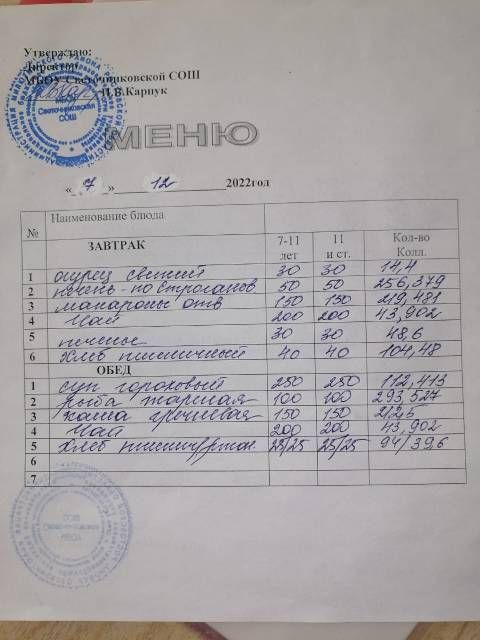 Утверждаю:
Директор
МБОУ Светочниковской СОШ
Н.В.Карпук
МЕНЮ
« 7 » 12 2022год
№ Наименование блюда
ЗАВТРАК 7-11 лет 11 и ст. Кол-во Колл.
1 огурец свежий 30 30 14,4
2 печень по строганов 50 50 256,379
3 макароны отв 150 150 219,481
4 Чай 200 200 43,902
5 печенье 30 30 48,6
6 Хлеб пшеничный 40 40 104,48
ОБЕД
1 суп гороховый 250 250 112,413
2 рыба жареная 100 100 293,527
3 каша гречневая 150 150 2126
4 Чай 200 200 43,902
5 Хлеб 25/25 25/25 94/39,6
6
7
СОШ